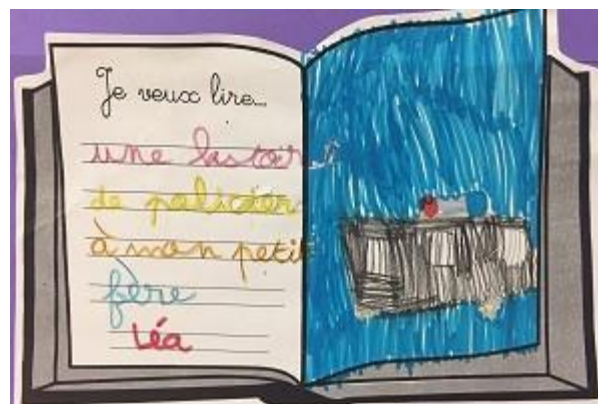 Je veux lire...
une lastoir
de policier
à mon petit
fère
Léa